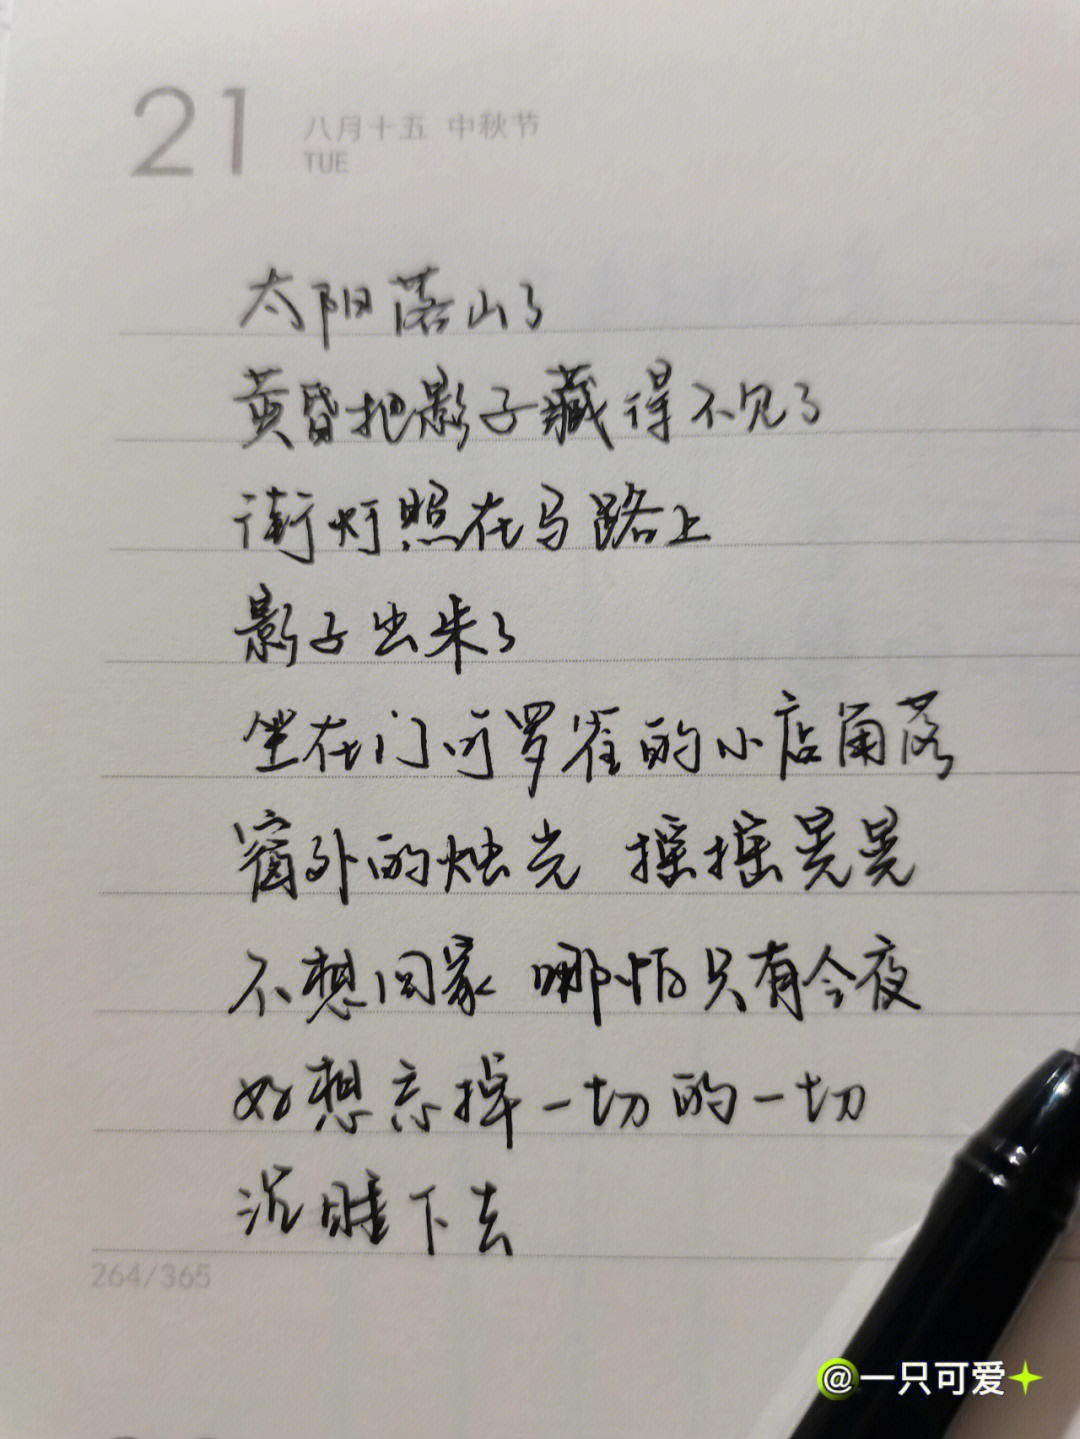 21 八月十五 中秋节
TUE
太阳落山了
黄昏把影子藏得不见了
街灯照在马路上
影子出来了
坐在门可罗雀的小店角落
窗外的烛光 摇摇晃晃
不想回家 哪怕只有今夜
好想忘掉一切的一切
沉睡下去
264/365
@一只可爱